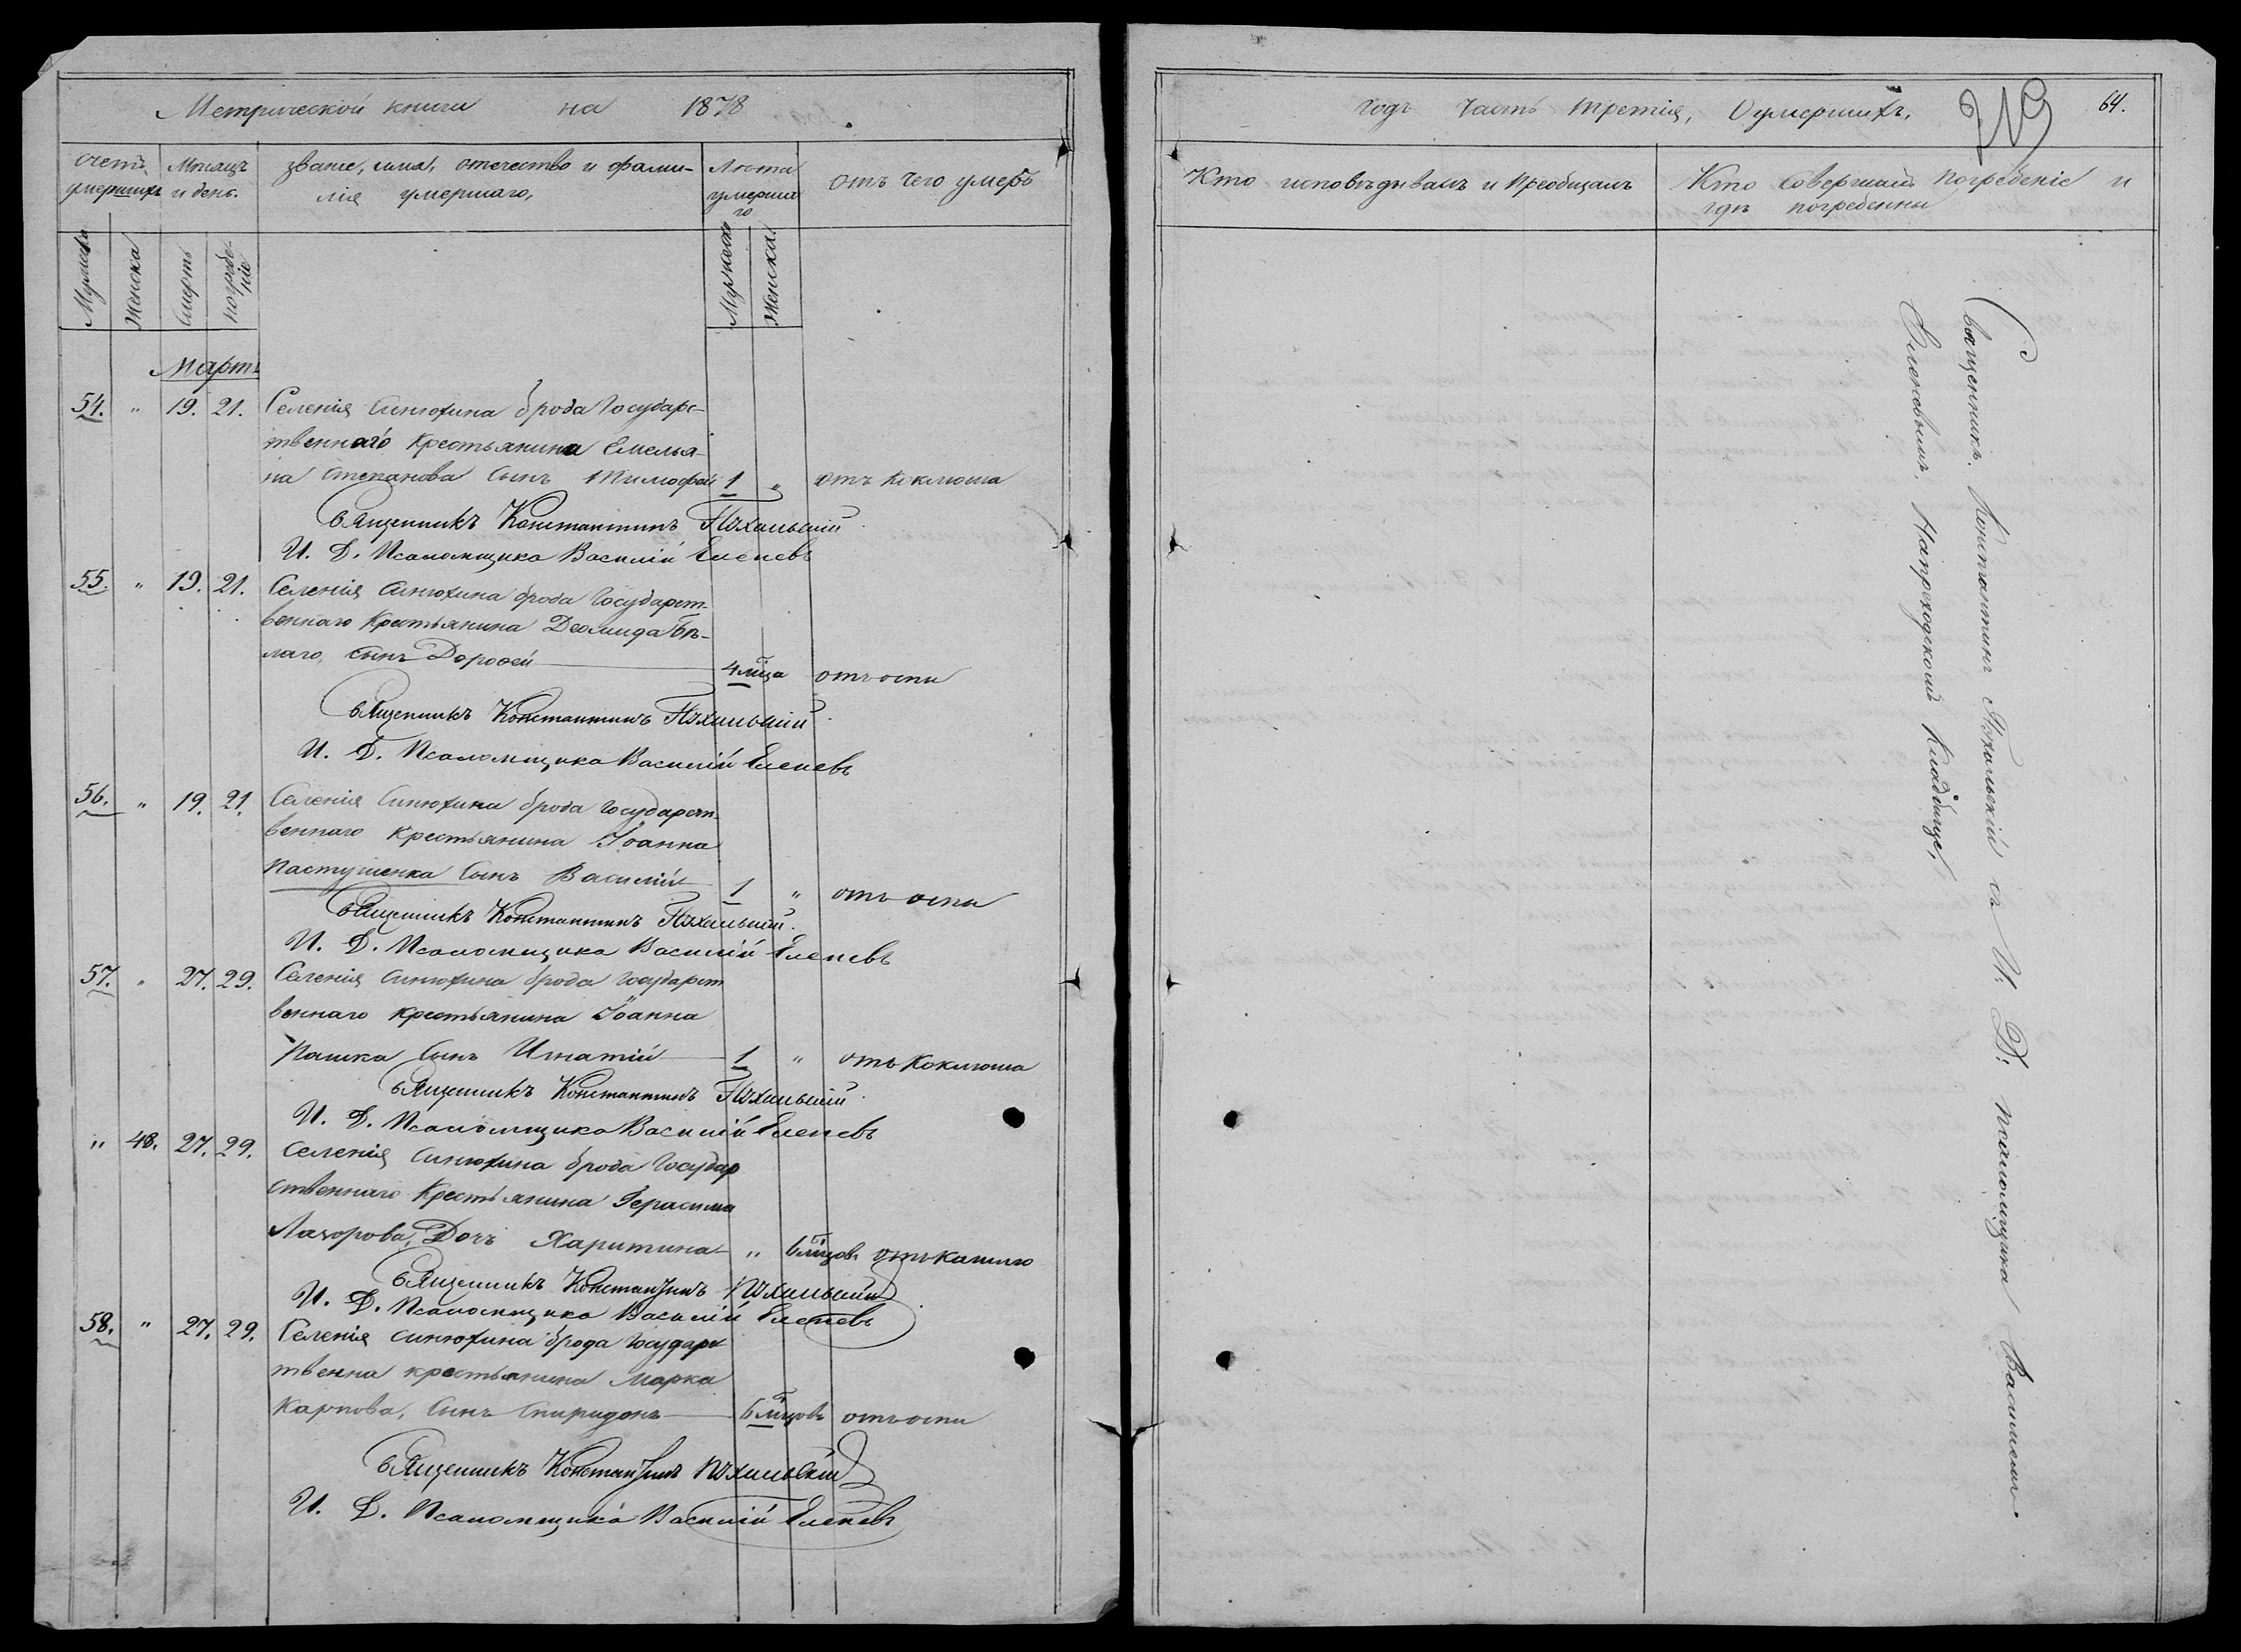 Метрической книги на 1878
счетъ умершихъ
Мѣсяцъ и день.
званіе, имя, отечество и фами-
лія умершаго,
Лѣта умершаго
отъ чего умеръ
Мужеска
Женска
Смерть
погребеніе
Мужеска
Женска
Мартъ
54. " 19. 21. Селенія Синюхина брода Государс-
твеннаго Крестьянина Емелья-
на Степанова Сынъ Тимофей 1 " отъ Коклюша
Священникъ Константинъ
И. Д. Псаломщика Василій Еленевъ
55. " 19. 21. Селенія Синюхина брода Государст-
веннаго Крестьянина Деомида Бѣ-
лаго, сынъ Дорофей 4 мца отъ оспи
Священникъ Константинъ
И. Д. Псаломщика Василій Еленевъ
56. " 19. 21. Селенія Синюхина брода Государст-
веннаго Крестьянина Іоанна
Пастушенка Сынъ Василій 1 " отъ оспи
Священникъ Константинъ
И. Д. Псаломщика Василій Еленевъ
57. " 27. 29. Селенія Синюхина брода Государст
веннаго Крестьянина Іоанна
Пашка Сынъ Игнатій 1 " отъ Коклюша
Священникъ Константинъ
И. Д. Псаломщика Василій Еленевъ
" 48. 27. 29. Селенія Синюхина брода Государ
ственнаго Крестьянина Герасима
Лазорова, Дочь Харитина " 6 мцов. отъ кашлю
Священникъ Константинъ
И. Д. Псаломщика Василій Еленевъ
58. " 27. 29. Селенія Синюхина брода Государс
твенна крестьянина Марка
Карпова, Сынъ Спиридонъ 6 мцовъ отъ оспи
Священникъ Константинъ
И. Д. Псаломщика Василій Еленевъ
годъ Часть третія, О умершихъ,
219
64.
Кто исповѣдывалъ и Преобщалъ
Кто Совершалъ Погребеніе и
гдѣ погребенны
Священникъ Константинъ съ И. Д. псаломщика Василіемъ
Еленевымъ, На Кладбище,